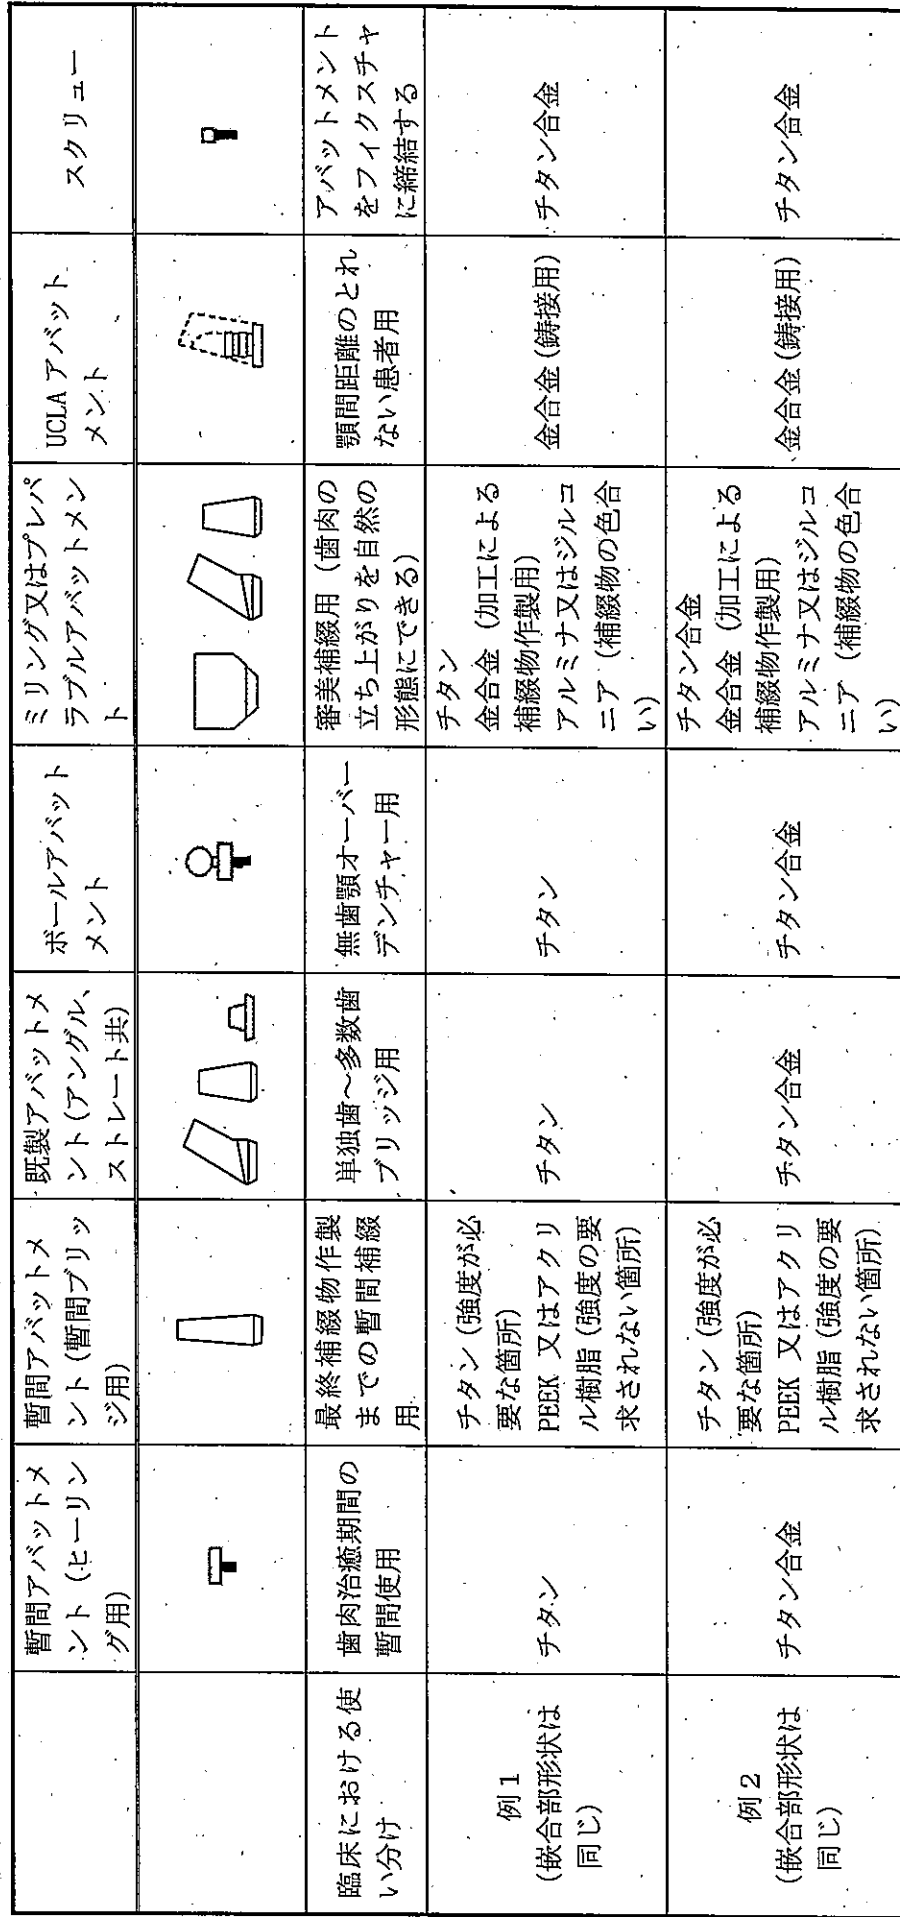 暫間アバットメ
ント(ヒーリン
グ用)
暫間アバットメ
ント(暫間ブリッ
ジ用)
既製アバットメ
ント(アングル、
ストレート共)
ボールアバット
メント
ミリング又はプレパ
ラブルアバットメン
ト
UCLA アバット
メント
スクリュー
臨床における使
い分け
歯肉治癒期間の
暫間使用
最終補綴物作製
までの暫間補綴
用
単独歯～多数歯
ブリッジ用
無歯顎オーバー
デンチャー用
審美補綴用（歯肉の
立ち上がりを自然の
形態にできる）
顎間距離のとれ
ない患者用
アバットメント
をフィクスチャ
に締結する
例1
(嵌合部形状は
同じ)
チタン
チタン(強度が必
要な箇所)
PEEK 又はアクリ
ル樹脂(強度の要
求されない箇所)
チタン
チタン
チタン
金合金（加工による
補綴物作製用）
アルミナ又はジルコ
ニア（補綴物の色合
い）
金合金(鋳接用)
チタン合金
例2
(嵌合部形状は
同じ)
チタン合金
チタン(強度が必
要な箇所)
PEEK 又はアクリ
ル樹脂(強度の要
求されない箇所)
チタン合金
チタン合金
チタン合金
金合金（加工による
補綴物作製用）
アルミナ又はジルコ
ニア（補綴物の色合
い）
金合金(鋳接用)
チタン合金